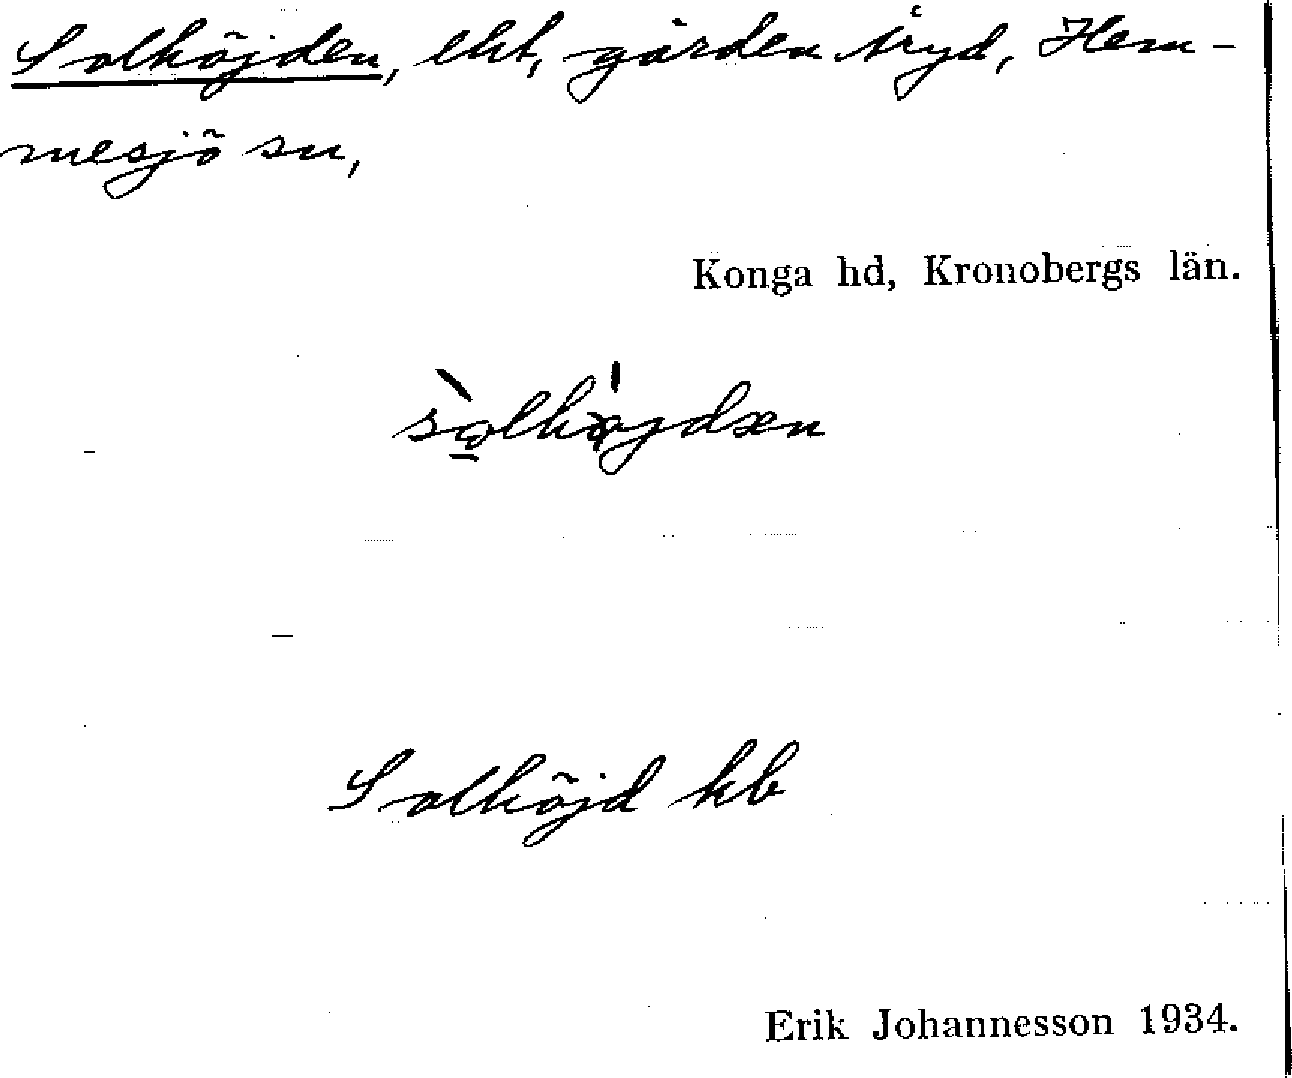 Solhöjden, lht, gården Åryd, Hem-
mesjö sn,
Konga hd, Kronobergs län.
Solhöjd hb
Erik Johannesson 1934.